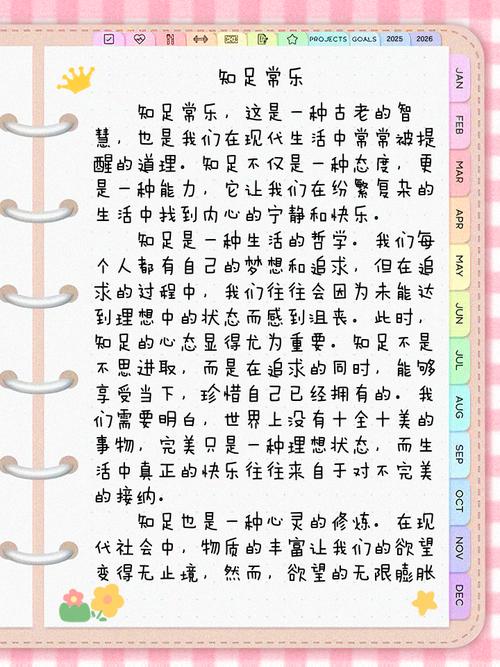 PROJECTS GOALS 2025 2026
知足常乐
知足常乐，这是一种古老的智
慧，也是我们在现代生活中常常被提
醒的道理。知足不仅是一种态度，更
是一种能力，它让我们在纷繁复杂的
生活中找到内心的宁静和快乐。
知足是一种生活的哲学。我们每
个人都有自己的梦想和追求，但在追
求的过程中，我们往往会因为未能达
到理想中的状态而感到沮丧。此时，
知足的心态显得尤为重要。知足不是
不思进取，而是在追求的同时，能够
享受当下，珍惜自己已经拥有的。我
们需要明白，世界上没有十全十美的
事物，完美只是一种理想状态，而生
活中真正的快乐往往来自于对不完美
的接纳。
知足也是一种心灵的修炼。在现
代社会中，物质的丰富让我们的欲望
变得无止境，然而，欲望的无限膨胀
JAN
FEB
MAR
APR
MAY
JUN
JUL
AUG
SEP
OCT
NOV
DEC